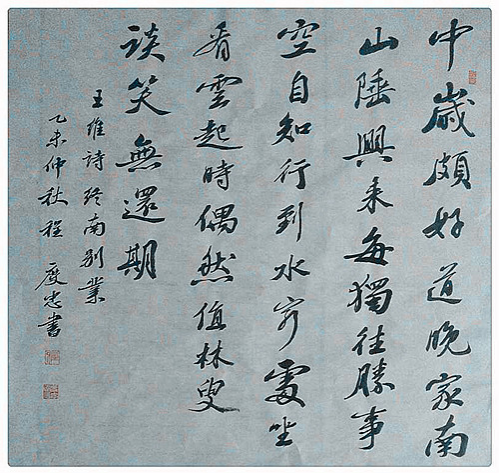 中歲頗好道晚家南
山陲興来每獨往勝事
空自知行到水穷處坐
看雲起時偶然值林叟
談笑無還期
王維詩终南别業
乙未仲秋程慶忠書